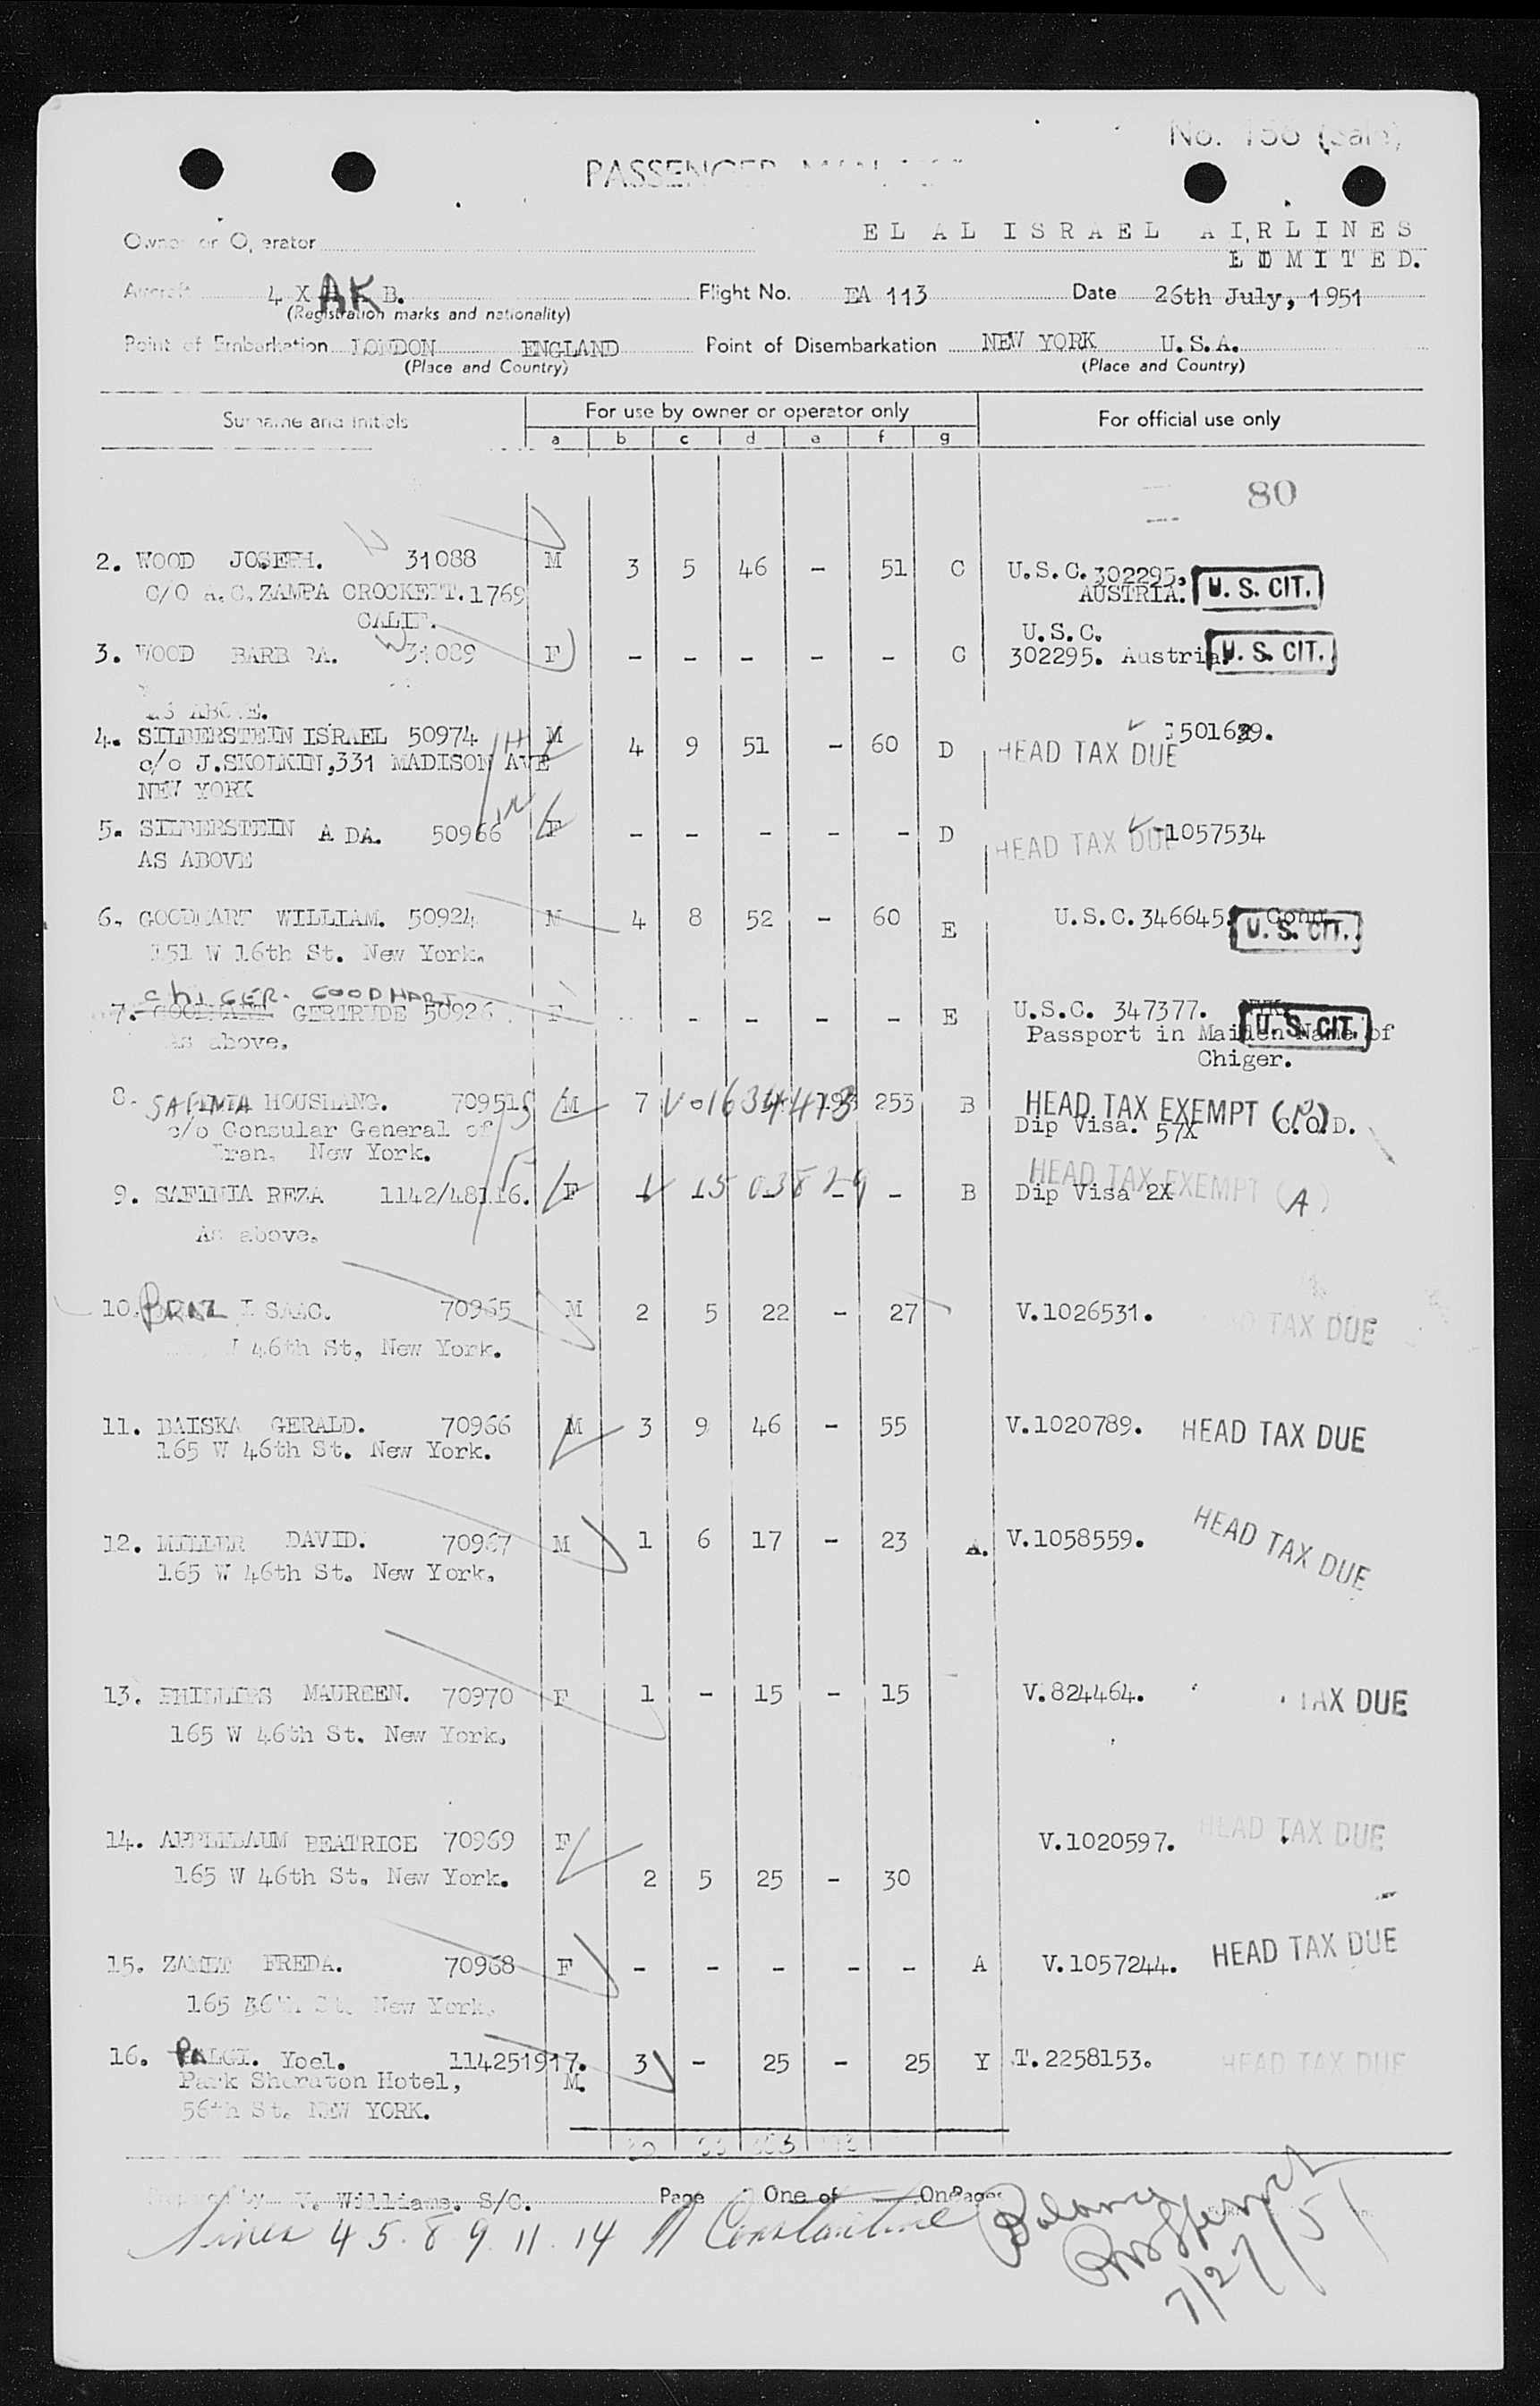 No. 156 (Sale)
PASSENGER MANIFEST
Owner or Operator EL AL ISRAEL AIRLINES
LIMITED.
Aircraft 4 X AK B. Flight No. EA 113 Date 26th July, 1951
(Registration marks and nationality)
Point of Embarkation LONDON ENGLAND Point of Disembarkation NEW YORK U.S.A.
(Place and Country) (Place and Country)
Surname and Initials For use by owner or operator only For official use only
a b c d e f g
80
2. WOOD JOSEPH. 31088 M 3 5 46 - 51 C U.S.C. 302295. U. S. CIT.
C/O A.C. ZAMPA CROCKETT. 1769 AUSTRIA.
CALIF.
U.S.C.
3. WOOD BARBARA. 31089 F - - - - - C 302295. Austria. U. S. CIT.
AS ABOVE.
4. SILBERSTEIN ISRAEL 50974 M 4 9 51 - 60 D HEAD TAX DUE
c/o J.SKOLKIN,331 MADISON AVE
NEW YORK
5. SILBERSTEIN ADA. 50966 F - - - - - D HEAD TAX DUE 1057534
AS ABOVE
6. GOODHART WILLIAM. 50924 M 4 8 52 - 60 E U.S.C.346645. Conn. U. S. CIT.
151 W 16th St. New York.
CHIGER. GOODHART
7. GOODHART GERTRUDE 50926 F - - - - - E U.S.C. 347377. NYK. U. S. CIT.
as above. Passport in Maiden Name of
Chiger.
8. SAFINIA HOUSHANG. 70951 M 7 V-01634473 253 B HEAD TAX EXEMPT
c/o Consular General of Dip Visa. 57X C.O.D.
Iran, New York.
9. SAFINIA REZA 1142/48116. F V 1503829 - B Dip Visa 2X HEAD TAX EXEMPT (A)
As above.
10. ISAAC. 70965 M 2 5 22 - 27 V.1026531. HEAD TAX DUE
W 46th St, New York.
11. BAISKA GERALD. 70966 M 3 9 46 - 55 V.1020789. HEAD TAX DUE
165 W 46th St. New York.
12. MILLER DAVID. 70967 M 1 6 17 - 23 A. V.1058559. HEAD TAX DUE
165 W 46th St. New York.
13. PHILLIPS MAUREEN. 70970 F 1 - 15 - 15 V.824464. TAX DUE
165 W 46th St. New York.
14. APPLEBAUM BEATRICE 70969 F V.1020597. HEAD TAX DUE
165 W 46th St. New York. 2 5 25 - 30
15. ZAMET FREDA. 70968 F - - - - - A V.1057244. HEAD TAX DUE
165 46th St. New York.
16. PALGI. Yoel. 114251917. 3 - 25 - 25 Y T.2258153. HEAD TAX DUE
Park Sheraton Hotel, M.
56th St. NEW YORK.
Prepared by V. Williams. S/C. Page One of One Pages
Lines 4 5. 8 9. 11. 14 Constantine Balance
7/27/51